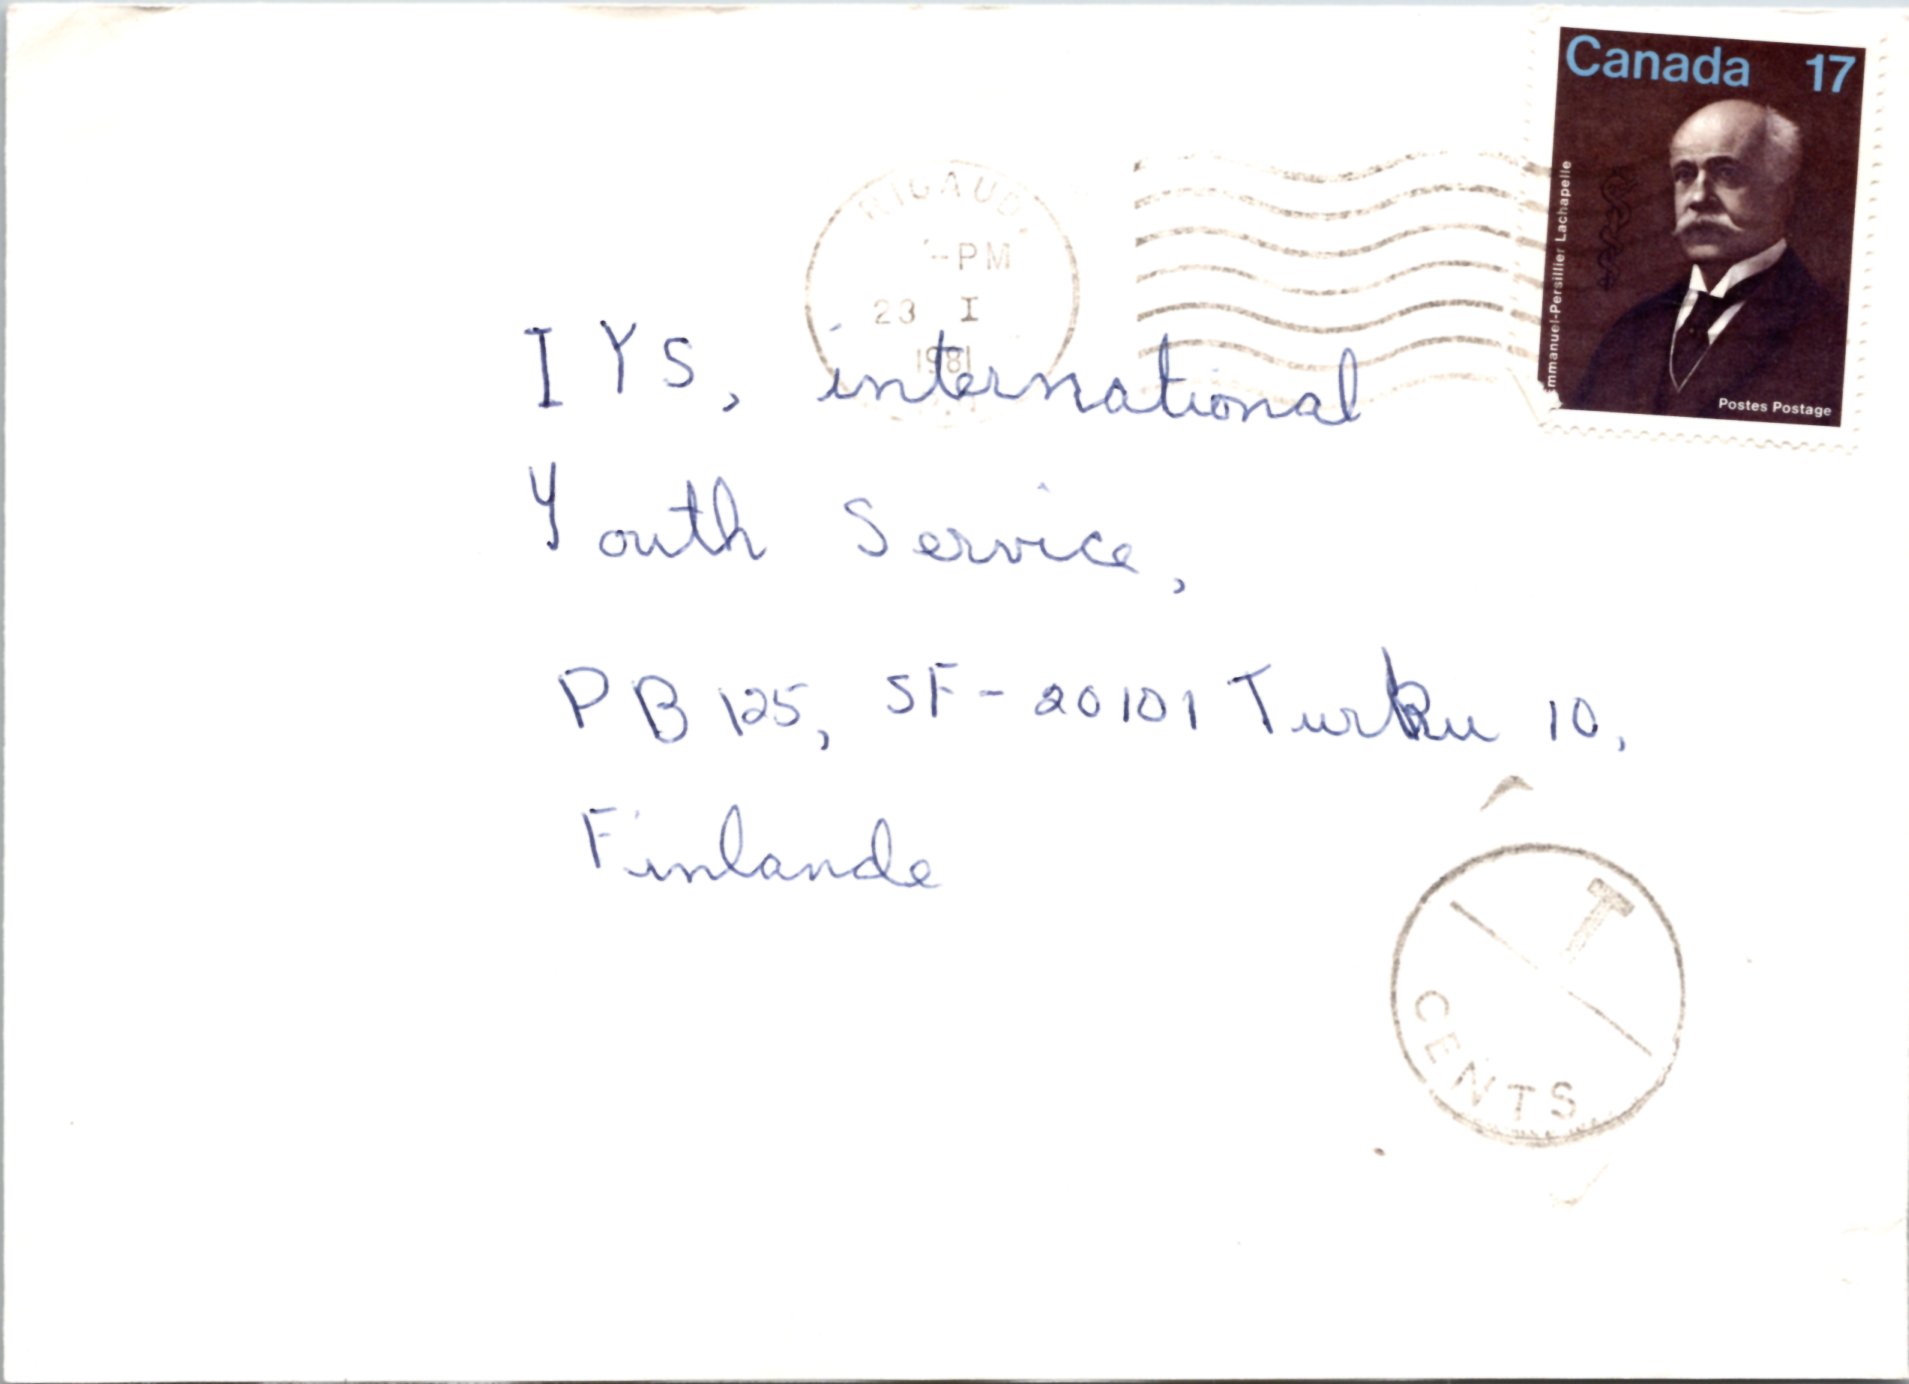 Canada 17
Emmanuel-Persillier Lachapelle
Postes Postage
RIGAUD
PM
23 I
1981
IYS, international
Youth Service,
PB 125, SF-20101 Turku 10,
Finlande
T
CENTS